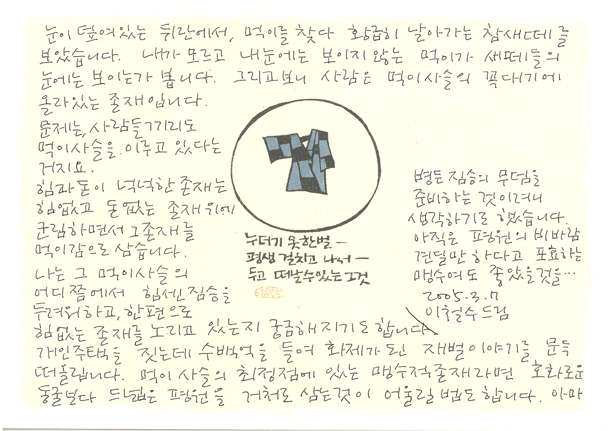 눈이 덮여있는 뒤란에서, 먹이를 찾다 황급히 날아가는 참새떼를
보았습니다. 내가 모르고 내눈에는 보이지 않는 먹이가 새떼들의
눈에는 보이는가 봅니다. 그리고보니 사람은 먹이사슬의 꼭대기에
올라있는 존재입니다.
문제는, 사람들끼리도
먹이사슬을 이루고 있다는
거지요.
힘과 돈이 넉넉한 존재는
힘없고 돈없는 존재 위에
군림하면서 그존재를
먹이감으로 삼습니다.
나는 그 먹이사슬의
어디쯤에서 힘센짐승을
두려워하고, 한편으로
힘없는 존재를 노리고 있는지 궁금해지기도합니다
개인주택을 짓는데 수백억을 들여 화제가된 재벌이야기를 문득
떠올립니다. 먹이사슬의 최정점에 있는 맹수적존재라면 호화로운
동굴보다 드넓은 평원을 거처로 삼는것이 어울릴법도합니다. 아마
병든짐승의 무덤을
준비하는 것이려니
생각하기로 했습니다.
아직은 평원의 비바람
견딜만 하다고 포효하는
맹수여도 좋았을것을...
2005.3.7
이철수드림
누더기 옷 한벌 –
평생 걸치고 나서 –
두고 떠날수있는 그것